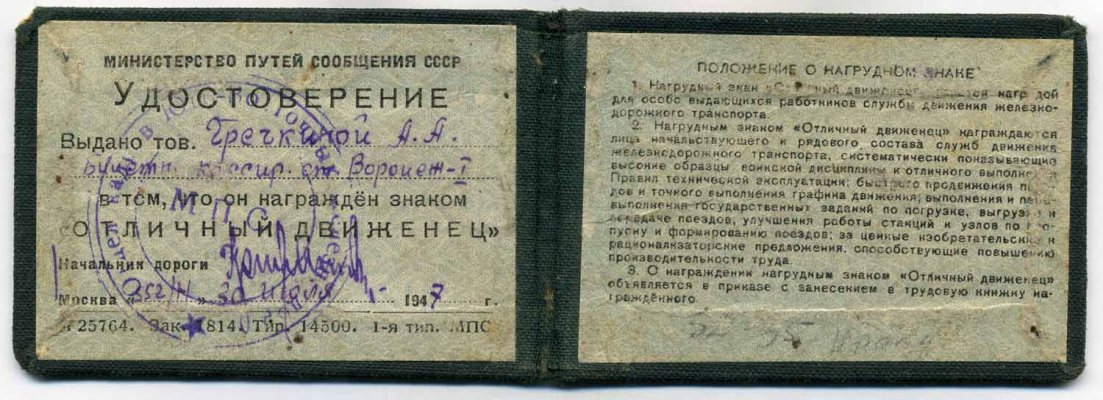 МИНИСТЕРСТВО ПУТЕЙ СООБЩЕНИЯ СССР
УДОСТОВЕРЕНИЕ
Выдано тов. Гречкиной А.А.
кассир. ст. Воронеж-I
в том, что он награждён знаком
«ОТЛИЧНЫЙ ДВИЖЕНЕЦ»
Начальник дороги
Москва « » 30 июля 1947 г.
25764. Зак. 1814. Тир. 14500. 1-я тип. МПС
МПС
ПОЛОЖЕНИЕ О НАГРУДНОМ ЗНАКЕ
1. Нагрудный знак движенец
для особо выдающихся работников службы движения железно-
дорожного транспорта.
2. Нагрудным знаком «Отличный движенец» награждаются
лица начальствующего и рядового состава служб движения
железнодорожного транспорта, систематически показывающие
высокие образцы воинской дисциплины и отличного выполнения
Правил технической эксплуатации; быстрого продвижения
и точного выполнения графика движения; выполнения и
выполнения государственных заданий по погрузке, выгрузке и
передаче поездов, улучшения работы станций и узлов по
пуску и формированию поездов; за ценные изобретательские и
рационализаторские предложения, способствующие повышению
производительности труда.
3. О награждении нагрудным знаком «Отличный движенец»
объявляется в приказе с занесением в трудовую книжку на-
граждённого.